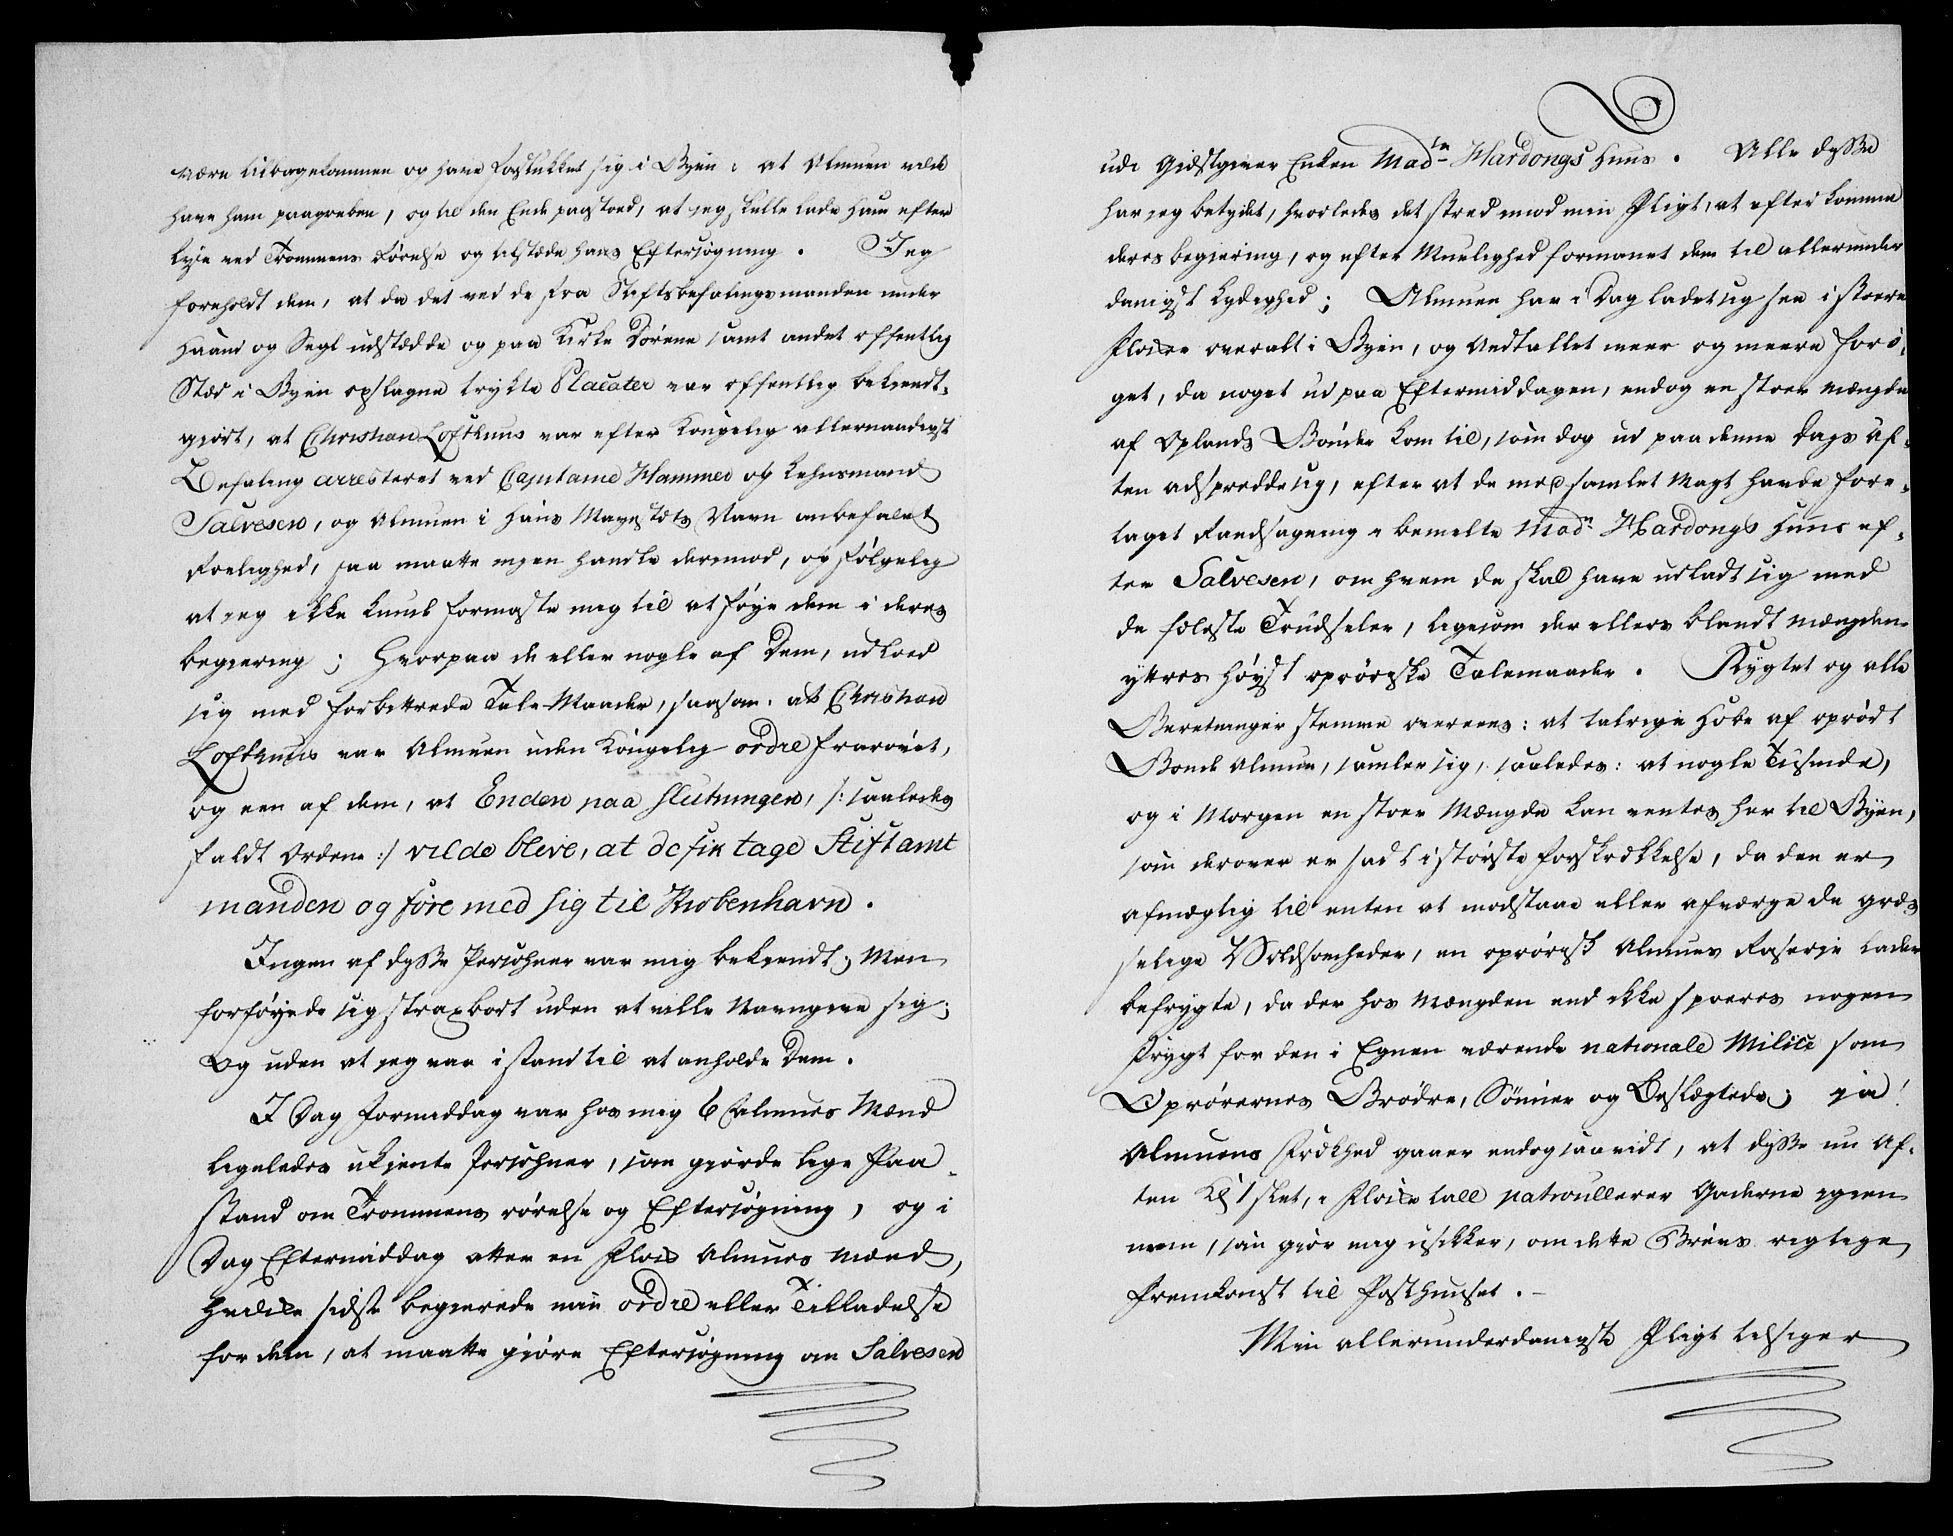 være tilbagekommen og have forstukket sig i Byen: at Almuen vilde
have ham paagreben, og til den Ende paastoed, at jeg skulle lade ham efter
lyse ved Trommens Rørelse og tilstæde hans Eftersøgning. Jeg
foreholdt dem, at da det ved de fra Stiftsbefalingsmanden under
Haand og Segl udstædde og paa Kirke Dørene samt andet offentlig
Stæd i Byen opslagne trykte Placater var offentlig bekiendt-
giørt, at Christian Lofthuus var efter Kongelig allernaadigst
Befaling arresteret ved Capitaine Hammer og Lehnsmand
Salvesen, og Almuen i Hans Mayestæts Navn anbefalet
Roelighed, saa maatte ingen handle derimod, og følgelig
at jeg ikke kunde formaste mig til at føye dem i deres
begiering; Hvorpaa de eller nogle af Dem, udloed
sig med forbittrede Tale-Maader, saasom: at Christian
Lofthuus var Almuen uden Kongelig ordre frarøvet,
og een af dem, at Enden paa Slutningen, /: saaledes
faldt Ordene :/ vilde blive, at de fik tage Stiftamt
manden og føre med sig til Kiøbenhavn.
Ingen af disse Persohner var mig bekiendt; Men
forføyede sig strax bort uden at ville Navngive sig;
Og uden at jeg var i stand til at anholde Dem.
I Dag Formiddag var hos mig 6 Almues Mænd
ligeledes ukiente Persohner, som giorde lige Paa-
stand om Trommens rørelse og Eftersøgning, og i
Dag Eftermiddag atter en Flok Almues Mænd,
Hvilke sidste begierede min ordre eller Tilladelse
for dem, at maatte giøre Eftersøgning om Salvesen
udi Giæstgiver Enken Mad<sup>m</sup> Hardongs Huus. Alle disse
har jeg betydet, hvorledes det stred imod min Pligt, at efterkomme
deres begiering, og efter Muelighed formanet dem til allerunder
danigst Lydighed; Almuen har i Dag ladet sig see i stoere
Flokke overalt i Byen, og Andtallet meer og meere forø-
get, da noget ud paa Eftermiddagen, endog en stoer mængde
af Oplands Bønder kom til, som dog ud paa denne Dags Af-
ten adspredde sig, efter at de med samlet Magt havde fore-
taget Randsagning i bemelte Mad<sup>m</sup> Hardongs Huus ef-
ter Salvesen, om hvem de skal have udladt sig med
de føleste Trudseler, ligesom der ellers blandt mængden
yttres høyst oprørske Talemaader. Rygtet og alle
Beretninger stemme overeens: at talrige Hobe af oprørt
Bonde Almue, samler sig, saaledes: at nogle Tusinde,
og i Morgen en stoer Mængde kan ventes her til Byen,
som derover er sadt i største forskrækkelse, da den er
afmægtig til enten at modstaae eller afværge de græs
selige Voldsomheder, en oprørisk Almues Raserie lader
befrygte, da der hos Mængden end ikke spores nogen
Frygt for den i Egnen værende nationale Milice som
Oprørernes Brødre, Sønner og Beslægtede; ja!
Almuens Frækhed gaaer endog saa vidt, at disse nu Af-
ten Kl: 1 slet, i Flokke tall patroullerer Gaderne igien-
nem, som giør mig usikker, om dette Brevs rigtige
fremkomst til Posthuuset.
Min allerunderdanigste Pligt tilsiger